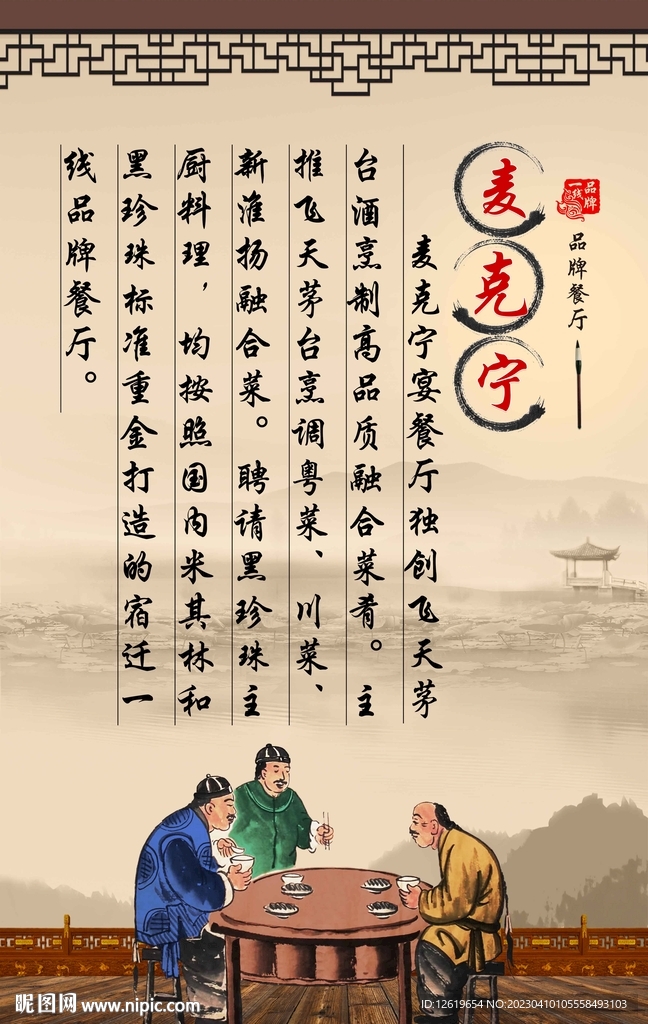 一线品牌
品牌餐厅
麦克宁
麦克宁宴餐厅独创飞天茅
台酒烹制高品质融合菜肴。主
推飞天茅台烹调粤菜、川菜、
新淮扬融合菜。聘请黑珍珠主
厨料理，均按照国内米其林和
黑珍珠标准重金打造的宿迁一
线品牌餐厅。
昵图网 www.nipic.com
ID:12619654 NO:20230410105558493103